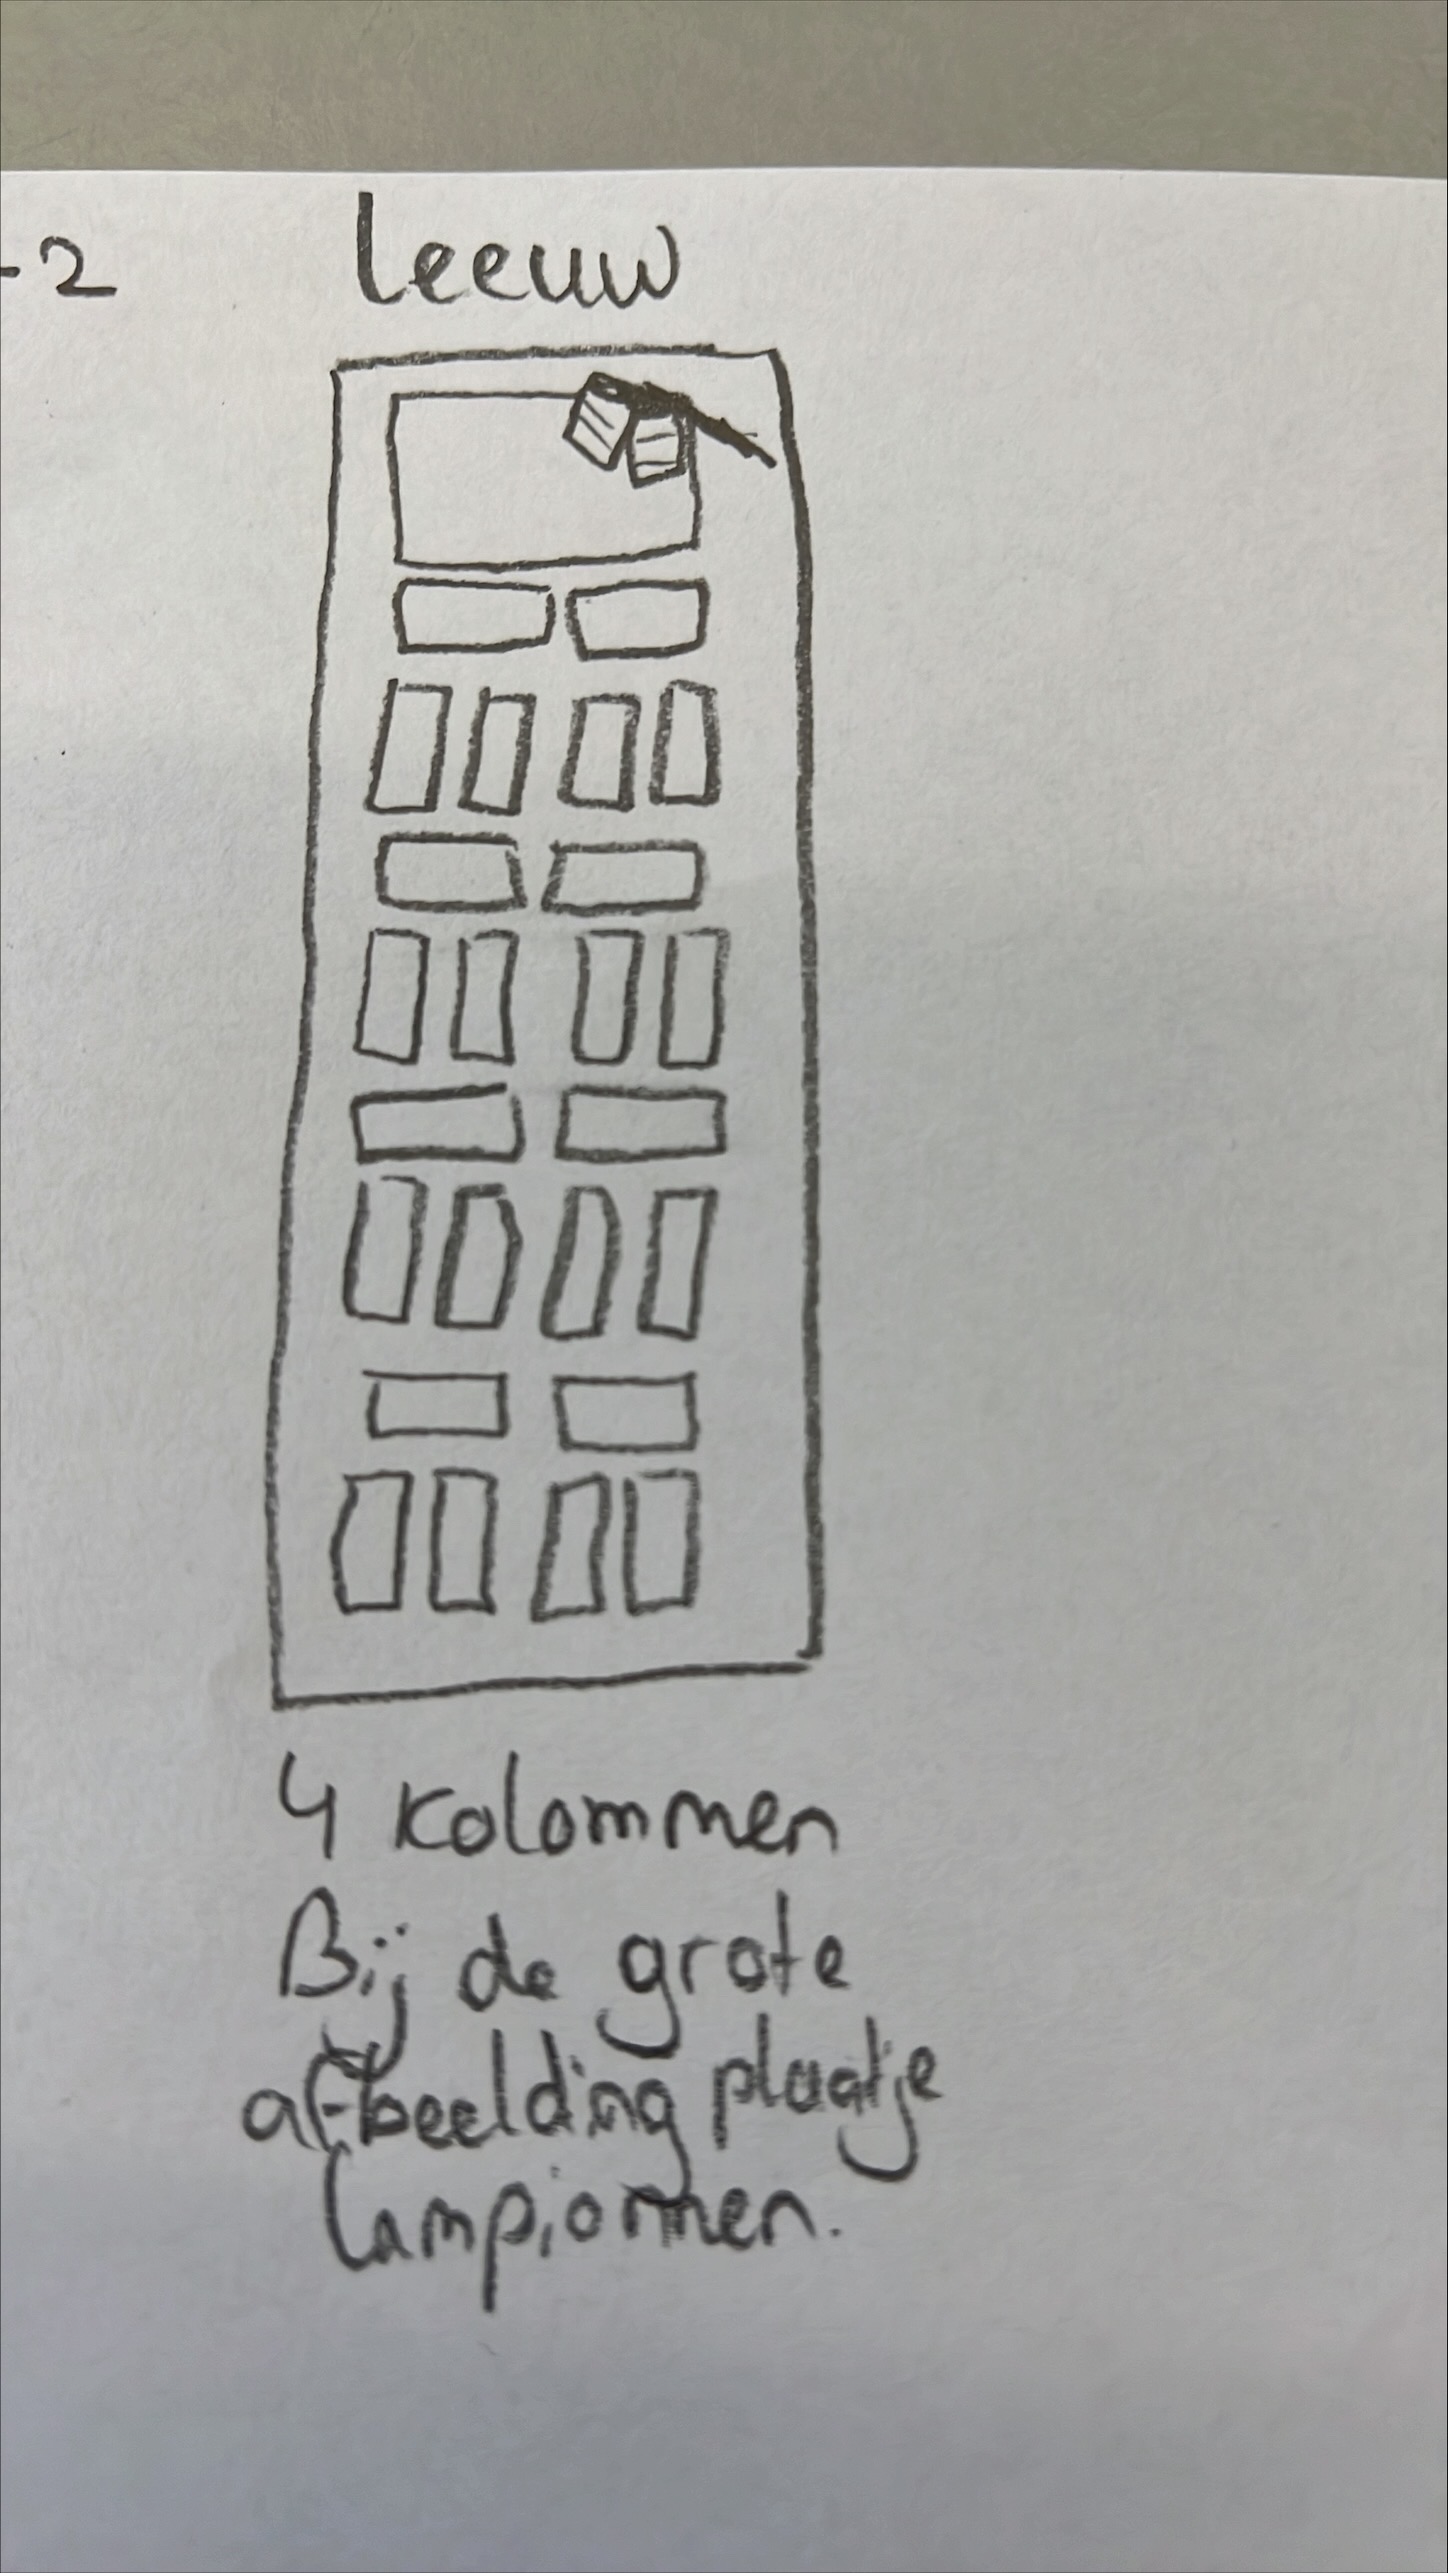 -2
Leeuw
4 kolommen
Bij de grote
afbeelding plaatje
lampionnen.